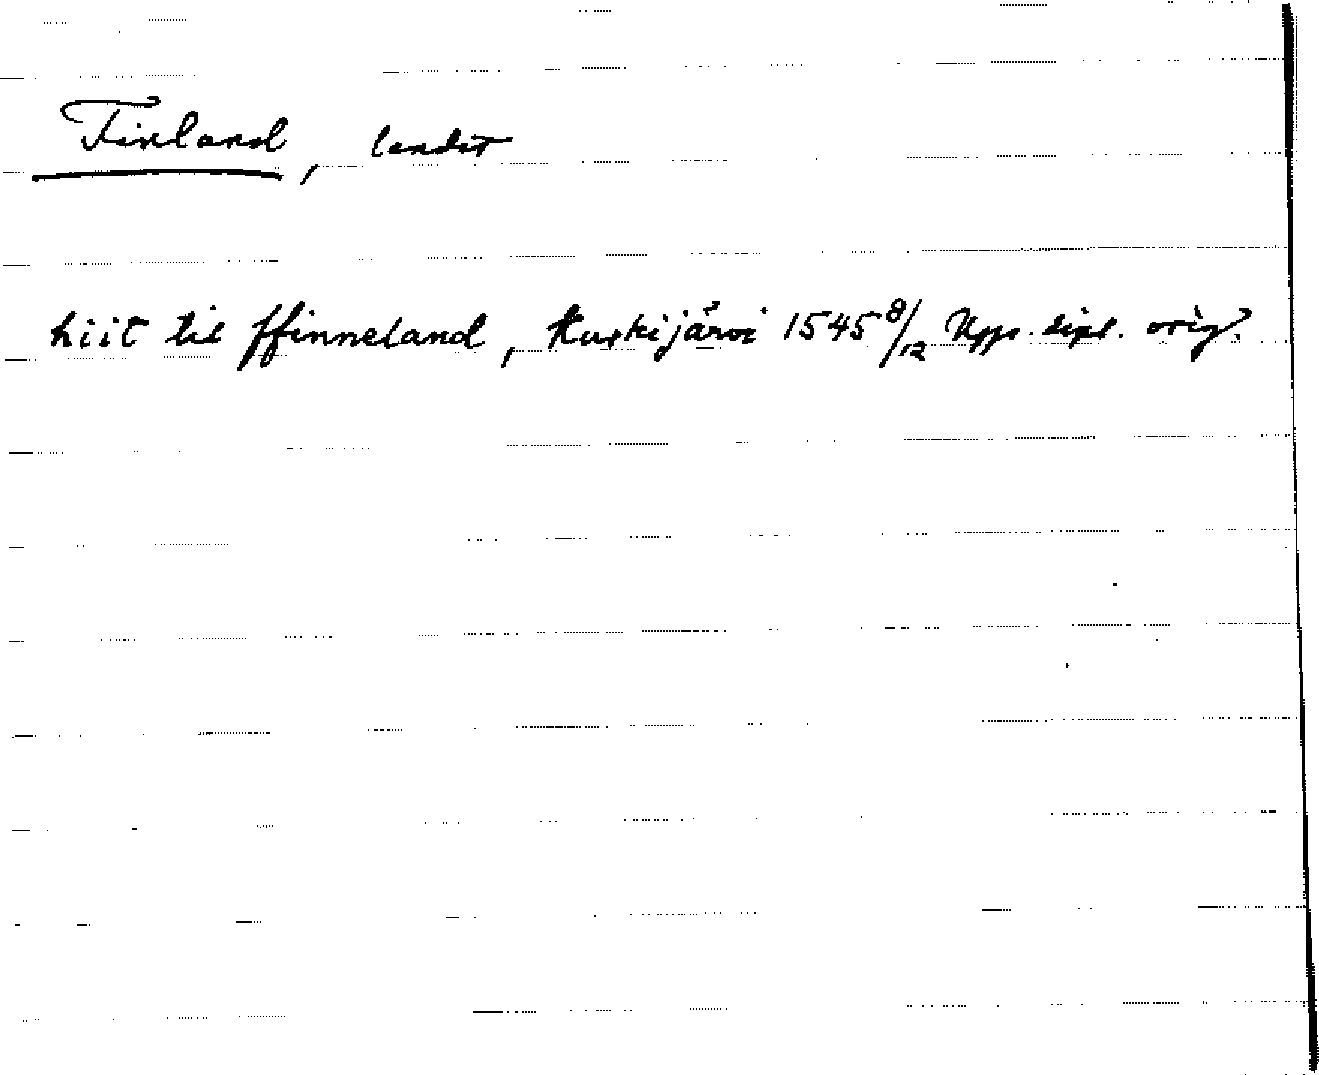 Finland, landet
hiit til ffinneland, Kuskijärvi 1545 8/12 Upps. dipl. orig.